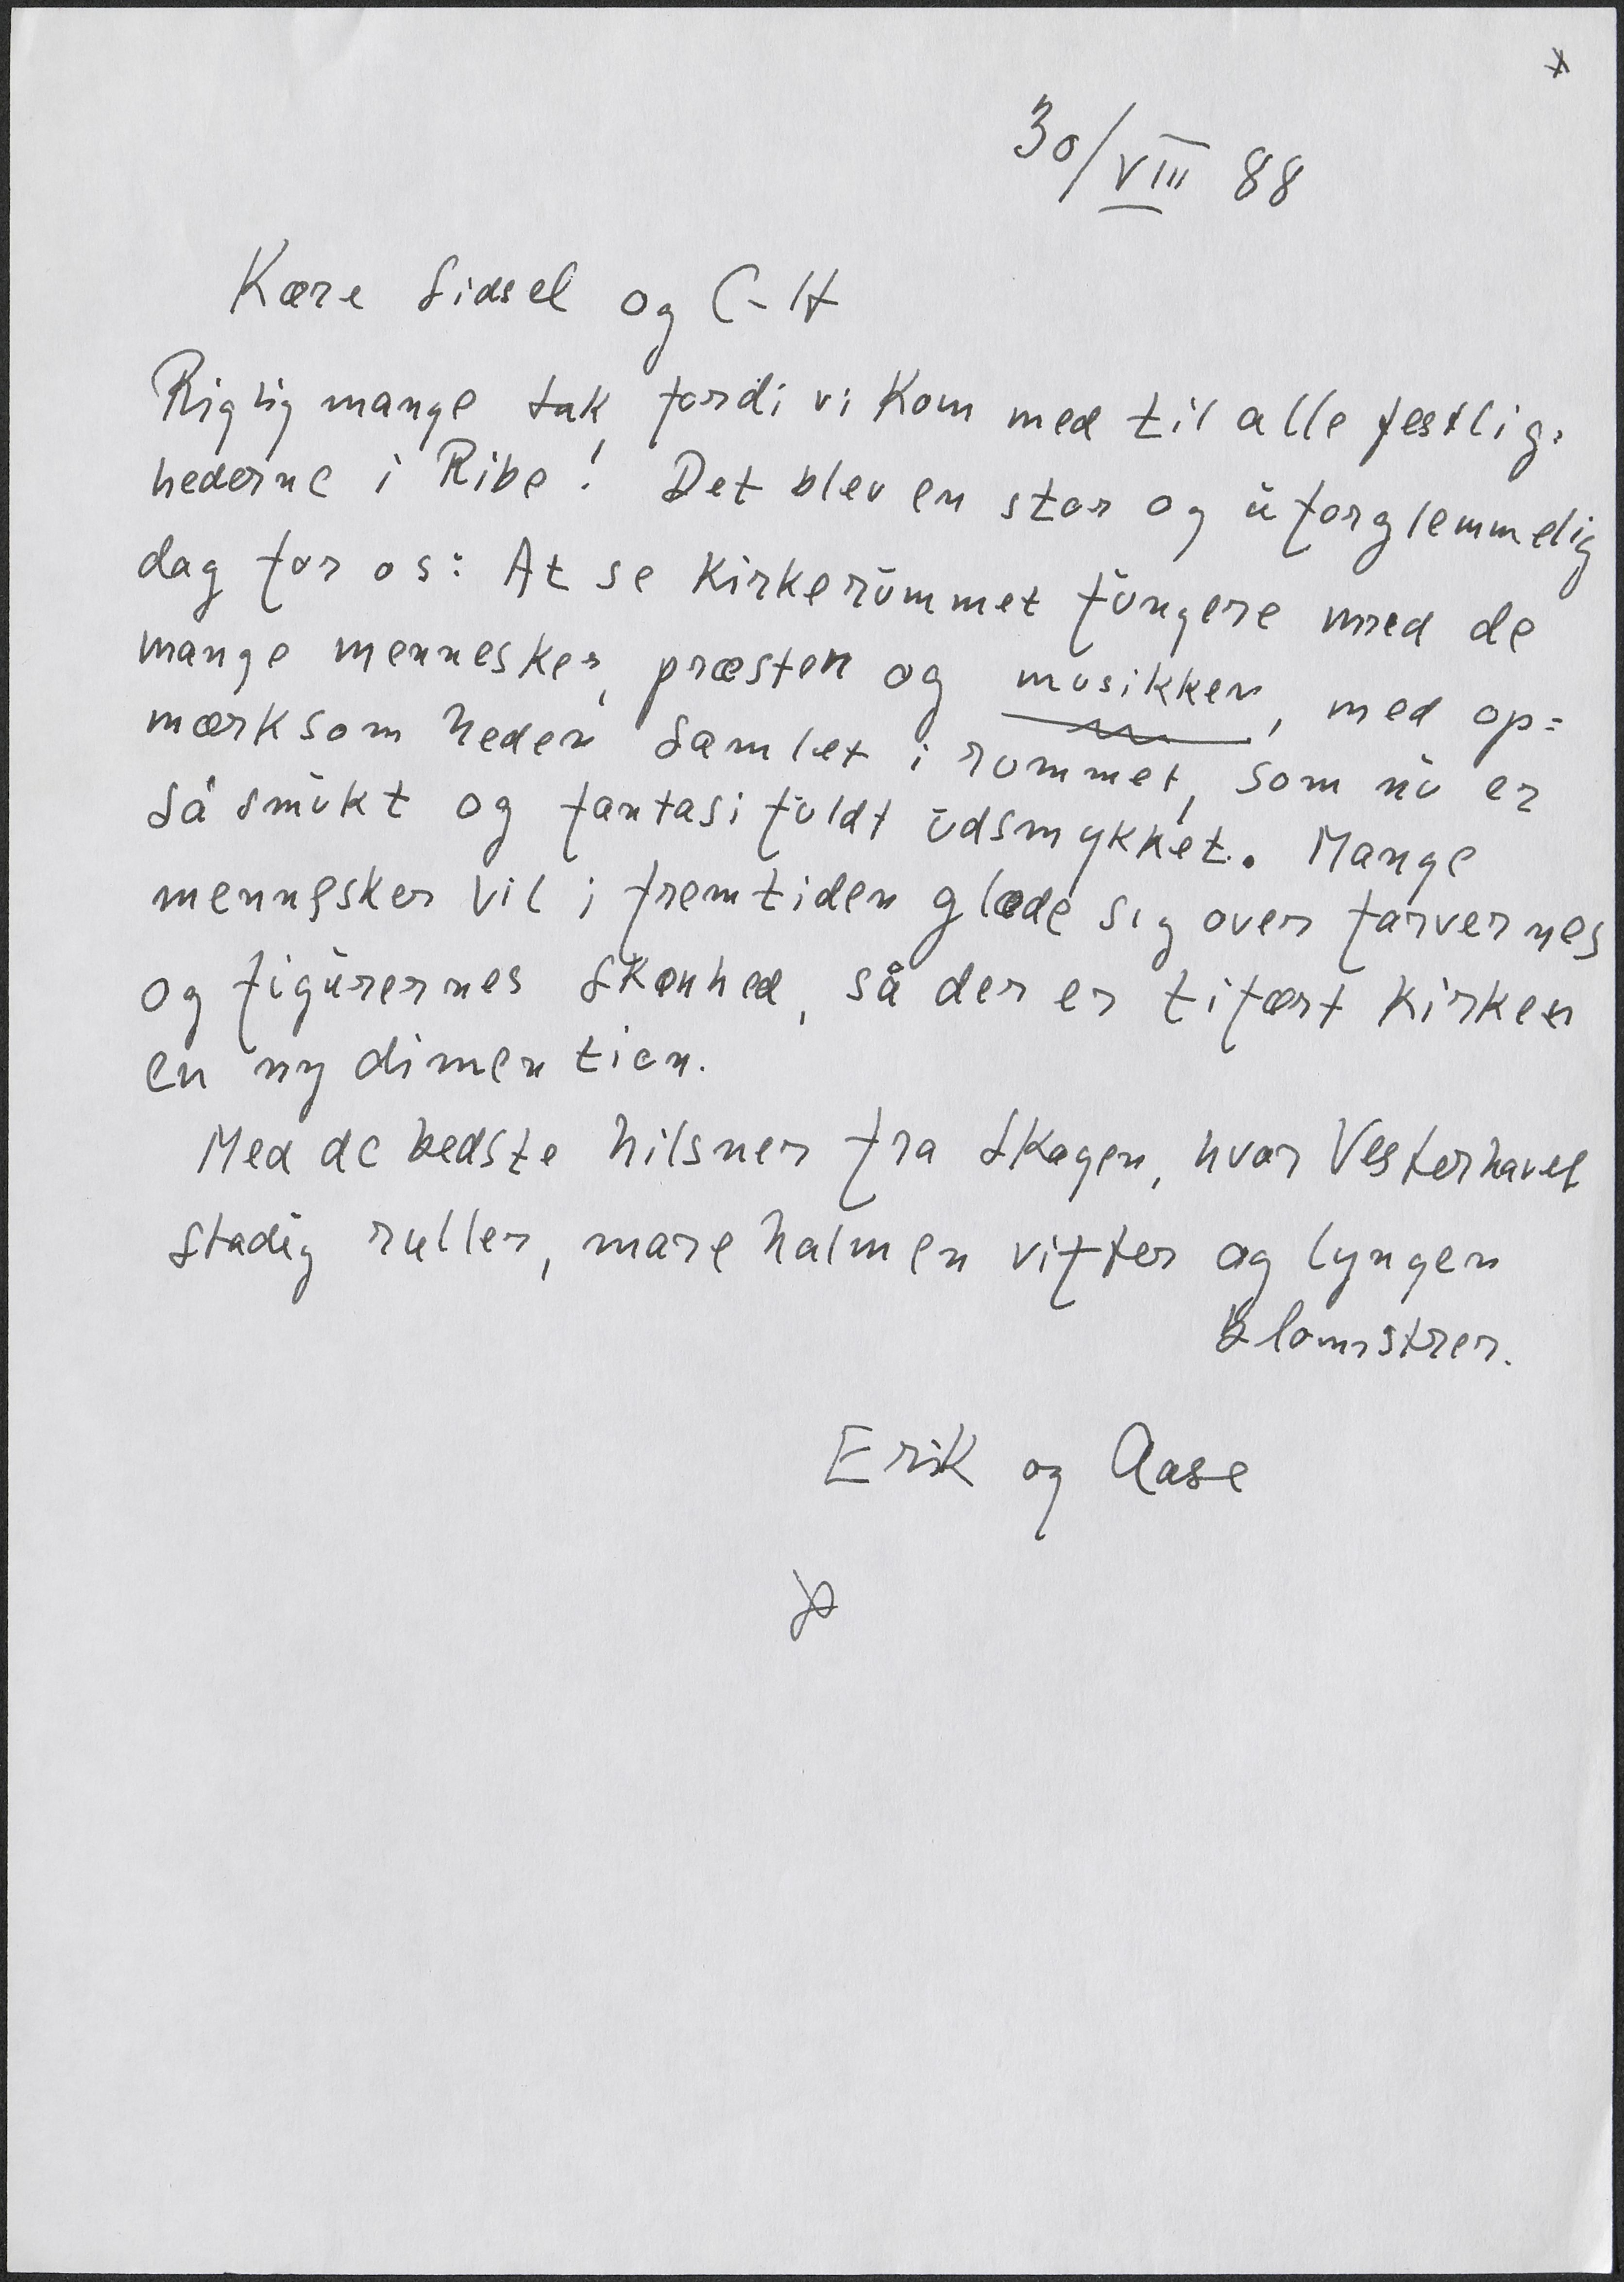 30/VIII 88
Kære Sidsel og C-H
Rigtig mange tak fordi vi kom med til alle festlig-
hederne i Ribe! Det blev en stor og uforglemmelig
dag for os: At se kirkerummet fungere med de
mange mennesker, præsten og musikken, med op=
mærksomheden samlet i rummet, som nu er
så smukt og fantasifuldt udsmykket. Mange
mennesker vil i fremtiden glæde sig over farvernes
og figurernes skønhed, så der er tifært kirken
en ny dimention.
Med de bedste hilsner fra Skagen, hvor Vesterhavet
stadig ruller, marehalmen vifter og lyngen
blomstrer.
Erik og Aase